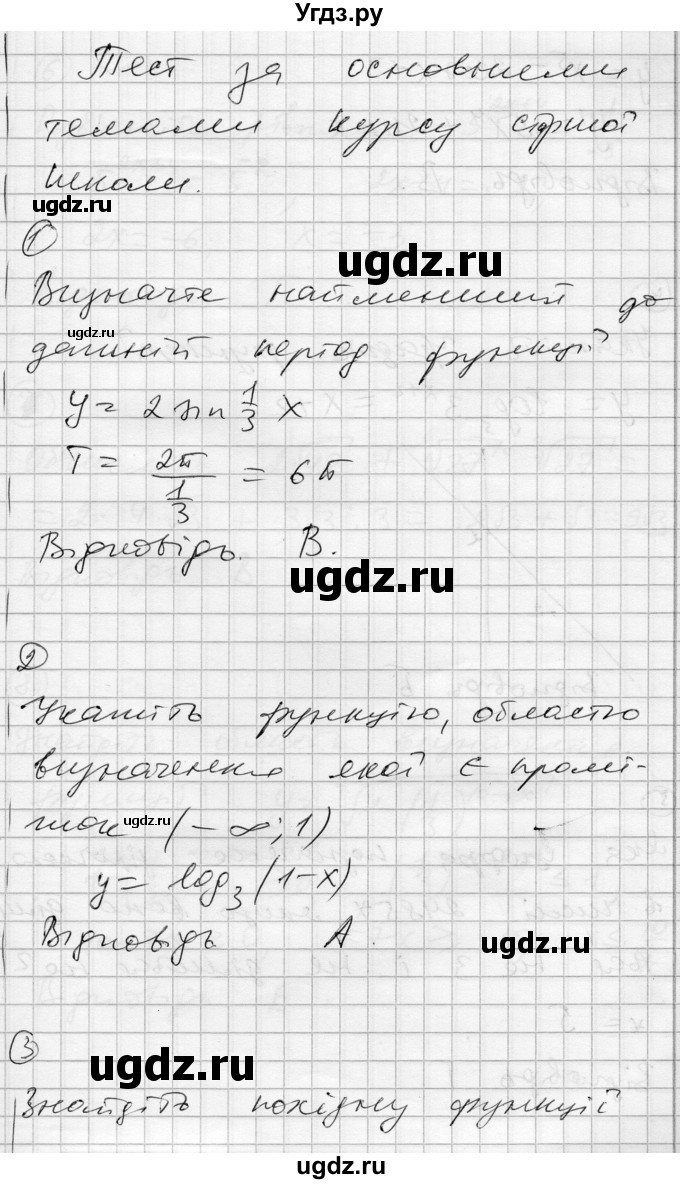 Угдз.ру
Тест за основними
темами курсу старшої
школи.
www.udgz.ru
①
ugdz.ru
Визначте найменший до
www.udgz.ru
датній період функції
y = 2 sin 1/3 x
T = 2π / (1/3) = 6π
Відповідь. В.
ugdz.ru
②
Укажіть функцію, областю
визначення якої є промі-
жок (-∞; 1)
www.udgz.ru
y = log₃ (1-x)
Відповідь А.
www.udgz.ru
③
ugdz.ru
Знайдіть похідну функції
www.udgz.ru